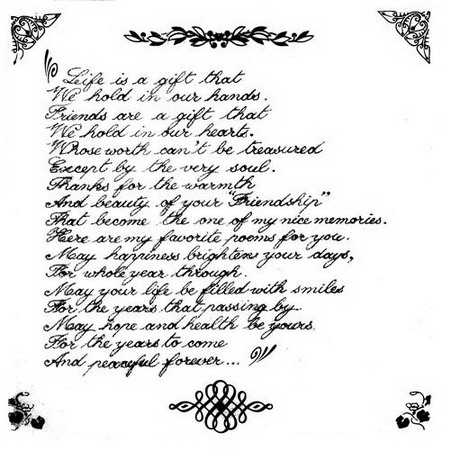 Life is a gift that
We hold in our hands.
Friends are a gift that
We hold in our hearts.
Whose worth can't be treasured
Except by the very soul.
Thanks for the warmth
And beauty of your "Friendship"
That become the one of my nice memories.
Here are my favorite poems for you.
May happiness brightens your days,
For whole year through.
May your life be filled with smiles
For the years that passing by.
May hope and health be yours
For the years to come
And peaceful forever...